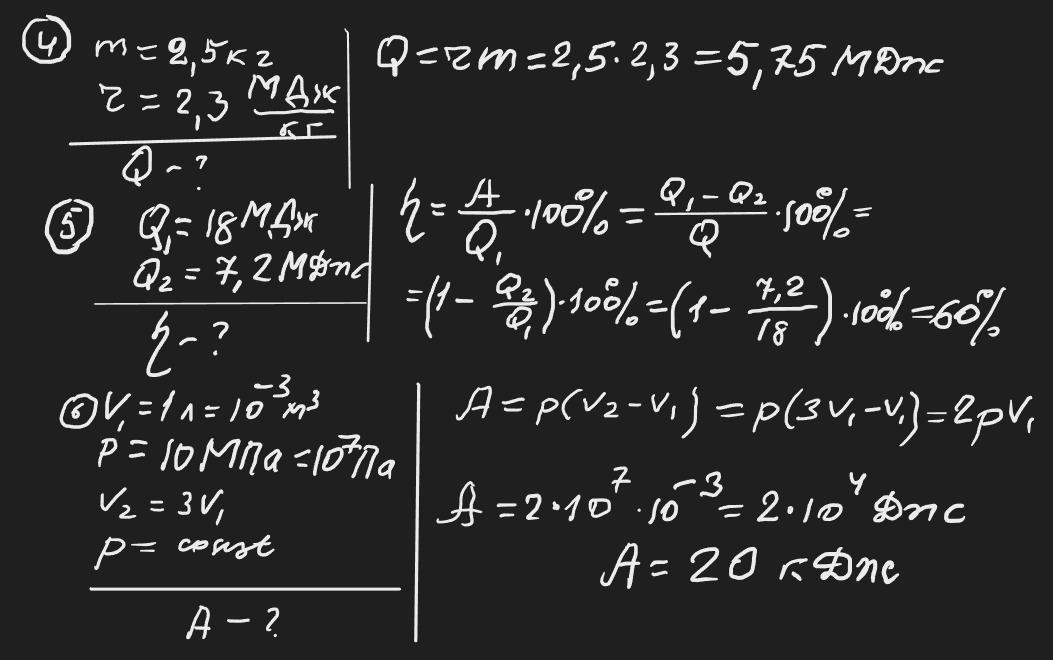 ④ m = 2,5 кг
r = 2,3 МДж/кг
Q - ?
Q = rm = 2,5 · 2,3 = 5,75 МДж
⑤ Q₁ = 18 МДж
Q₂ = 7,2 МДж
η - ?
η = A/Q₁ · 100% = (Q₁ - Q₂)/Q · 100% =
= (1 - Q₂/Q₁) · 100% = (1 - 7,2/18) · 100% = 60%
⑥ V₁ = 1 л = 10⁻³ м³
P = 10 МПа = 10⁷ Па
V₂ = 3V₁
p = const
A - ?
A = p(V₂ - V₁) = p(3V₁ - V₁) = 2pV₁
A = 2 · 10⁷ · 10⁻³ = 2 · 10⁴ Дж
A = 20 кДж